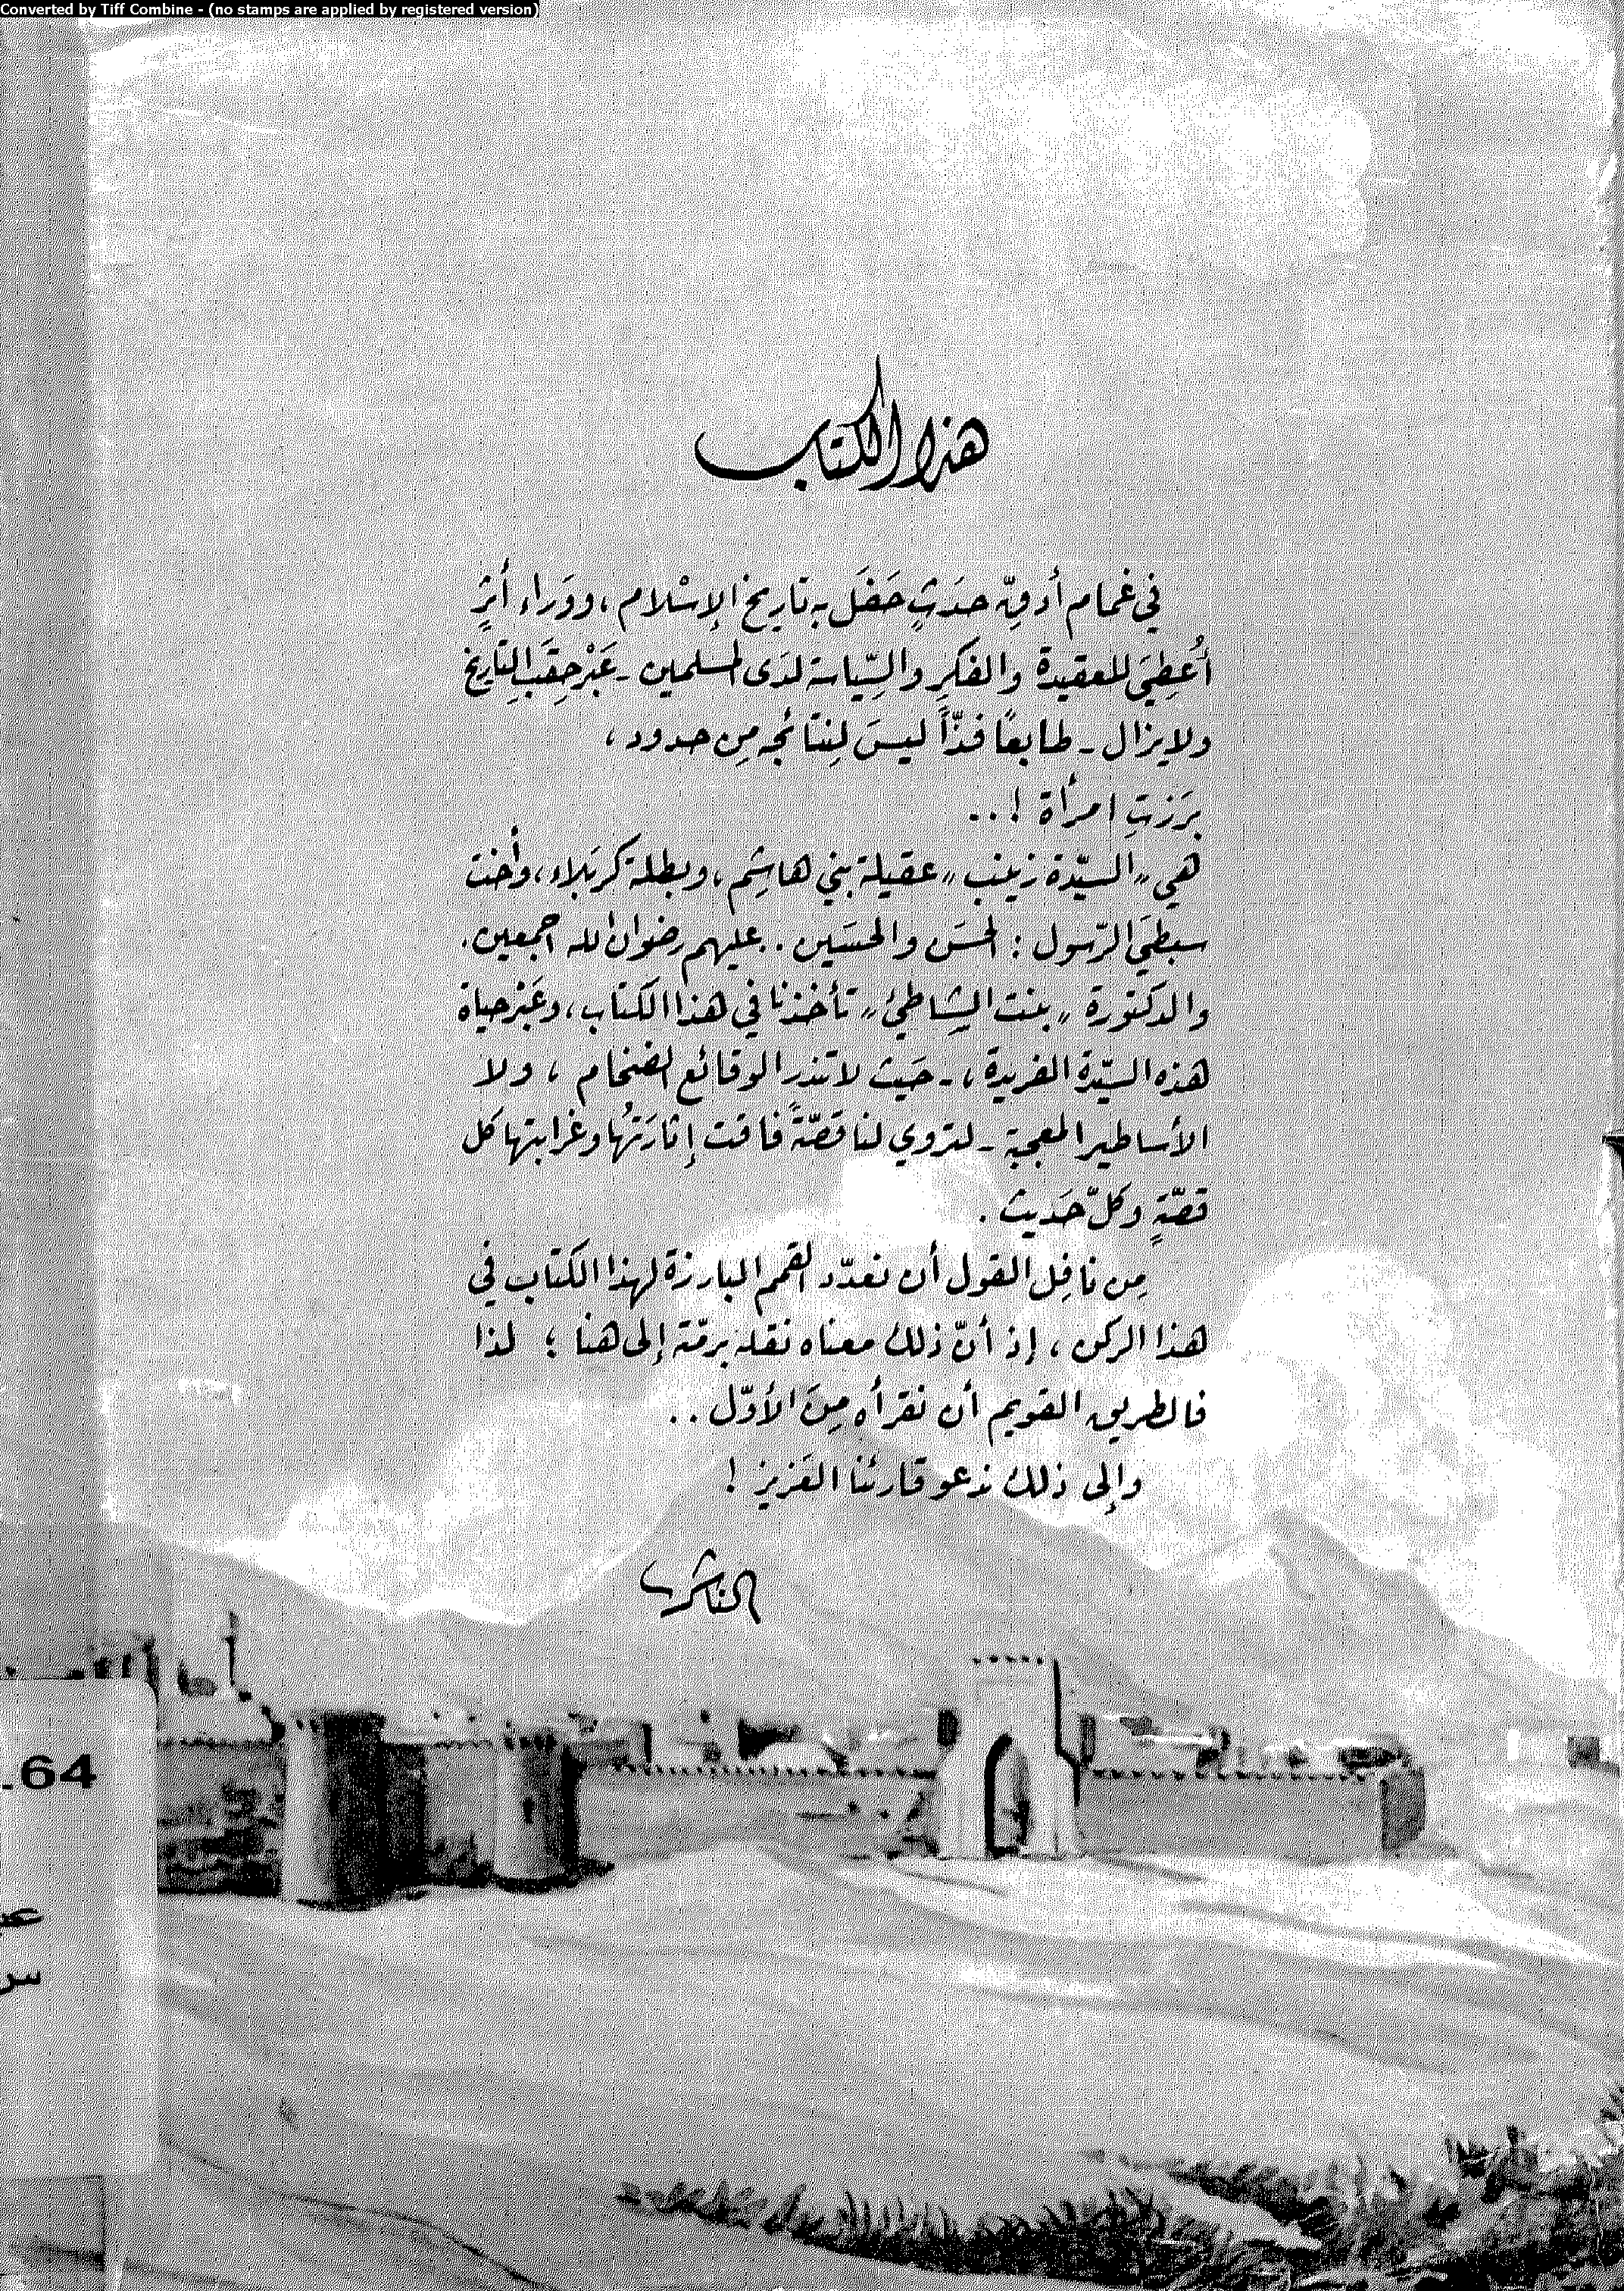 Converted by Tiff Combine - (no stamps are applied by registered version)
هذا الكتاب
في غمام أدقّ حدَثٍ حَفَل به تاريخ الإسْلام، ووَراء أثرٍ
أُعطِيَ للعقيدة والفكرِ والسِّياسة لدَى المسلمين - عَبْر حِقَب التاريخ
ولا يزال - طابعًا فذّاً ليسَ لِنتائجه مِن حدود،
برَزتِ امرأة !..
هي "السيّدة زينب" عقيلة بني هاشِم، وبطلة كربَلاء، وأخت
سبطَيِ الرّسول : الحسَن والحسَين .. عليهم رضوان الله اجمعين.
والدكتورة "بنت الشِاطئ" تأخذنا في هذا الكتاب، وعَبْر حياة
هذه السيّدة الفريدة، - حَيث لا تندر الوقائع الضخام ، ولا
الأساطير المعجبة - لتروي لنا قصّةً فاقت إثارَتُها وغرابتها كل
قصّةٍ وكلّ حَديث .
مِن نافِل القول أن نعدّد القمم البارزة لهذا الكتاب في
هذا الركن ، إذ أنّ ذلك معناه نقله برمّته إلى هنا ؛ لذا
فالطريق القويم أن نقرأه مِنَ الأوّل ..
وإلى ذلك ندعو قارئنا العَزيز !
الناشر
.64